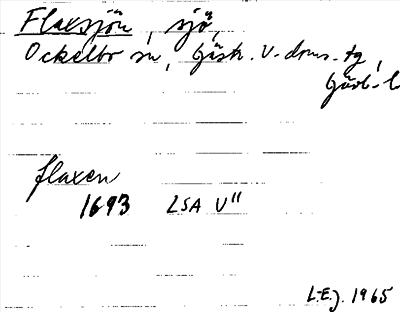 Flaxsjön, sjö,
Ockelbo sn, Gästr. V-doms-tg,
Gävl-l
flaxen
1693 LSA U"
L.E.J. 1965